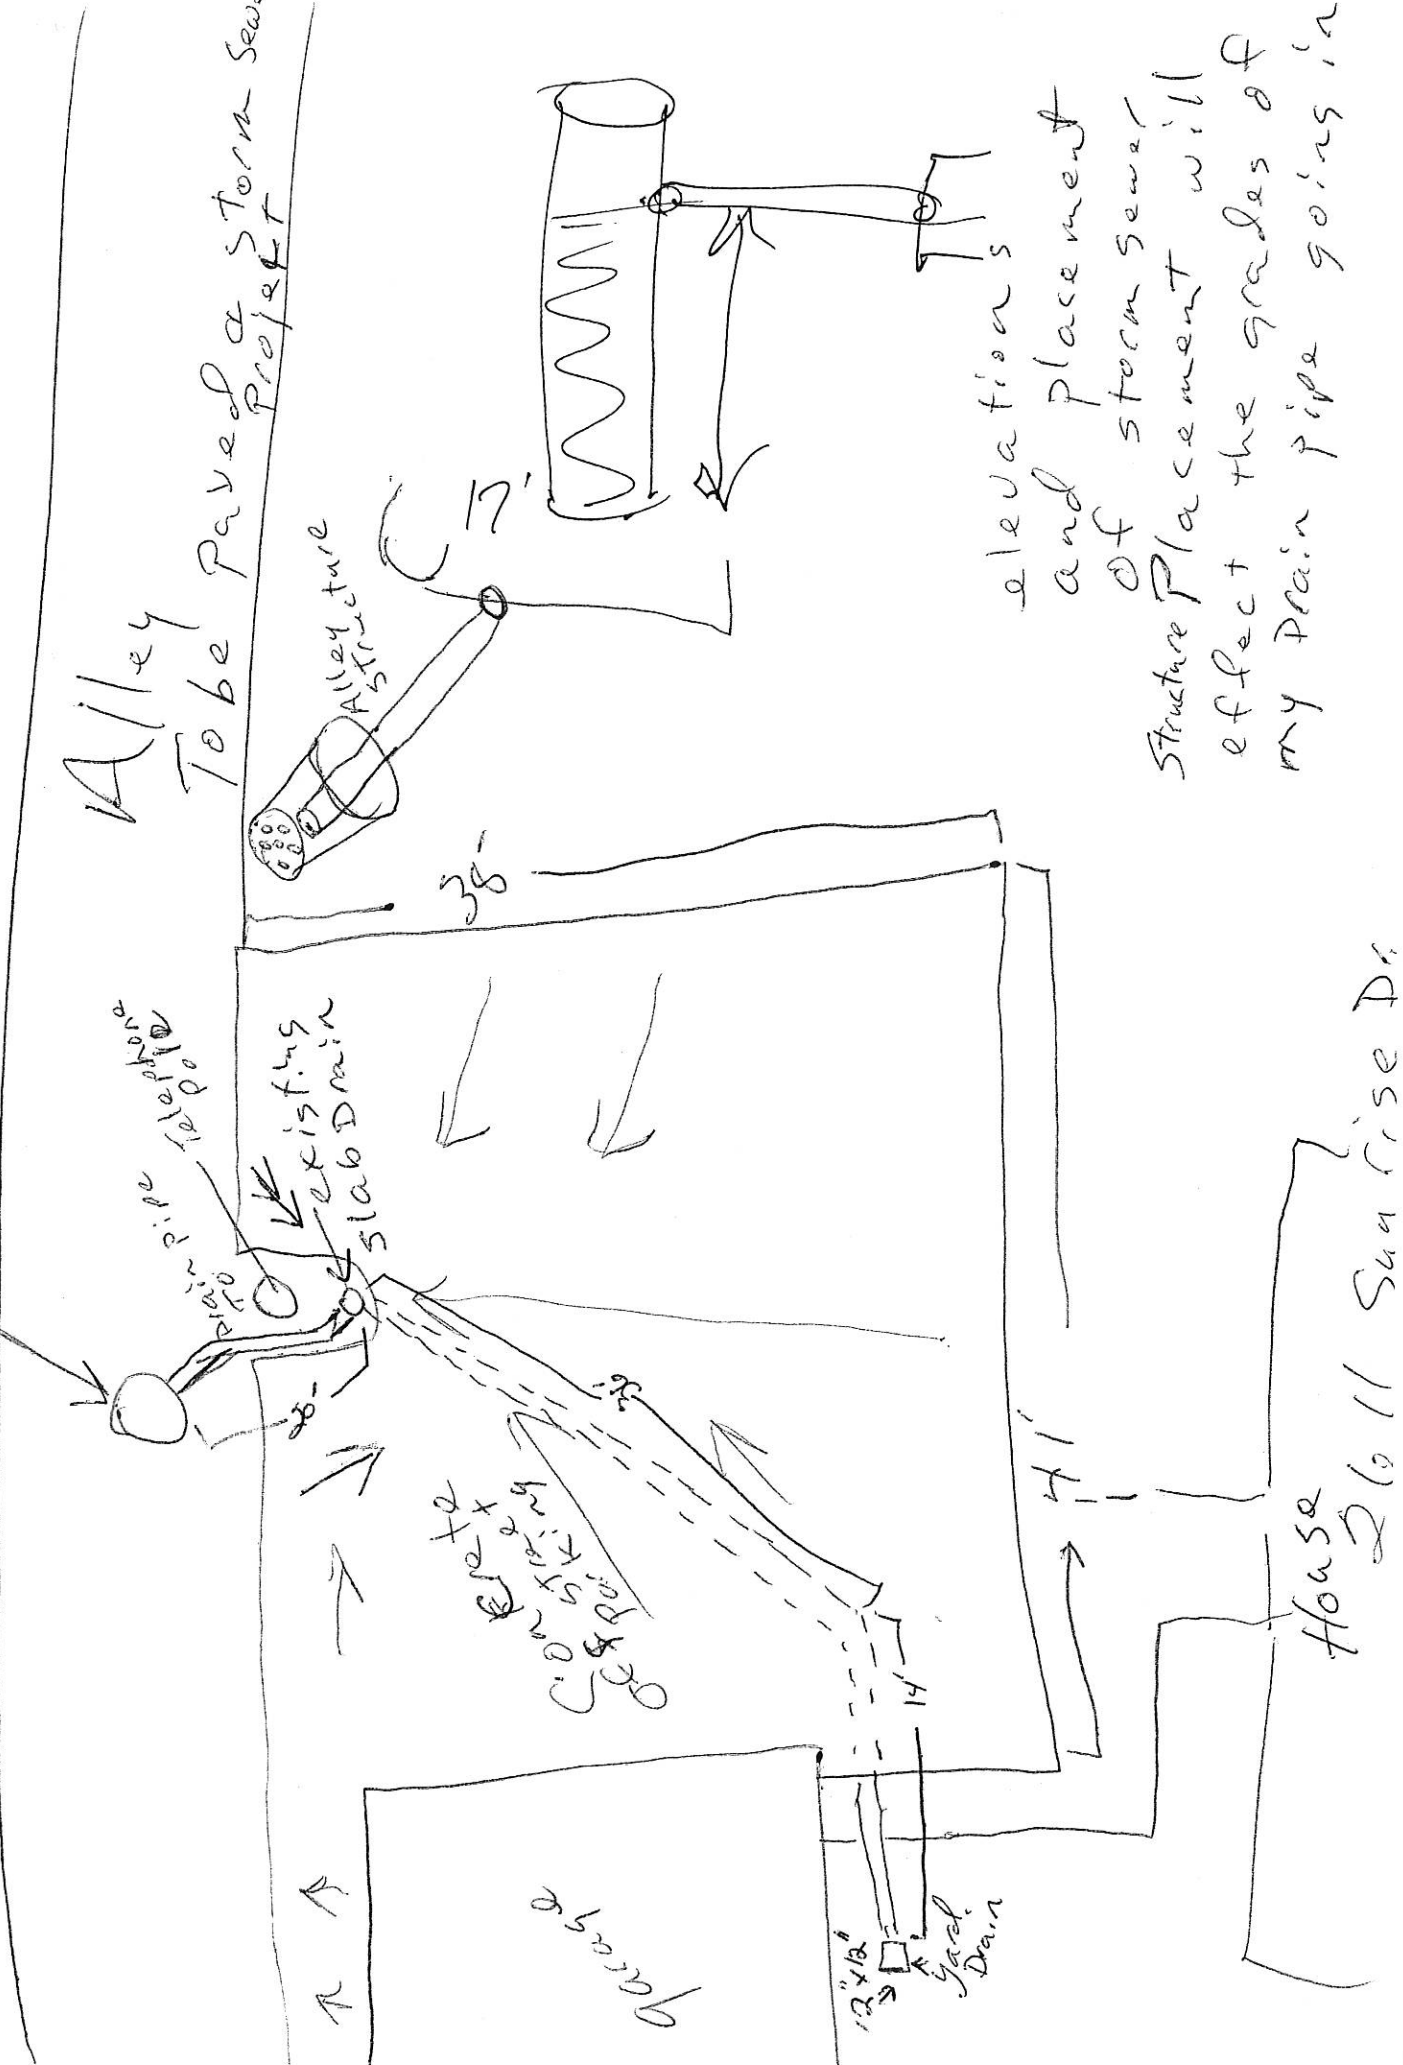 Alley
To be Paved a storm sewe
Project
Alley
Structure
17'
38'
Telephone
Pole
Drain Pipe
To
existing
slab Drain
Concrete
existing
Parking
14'
41'
garage
12"x12"
Yard
Drain
House
2611 Sunrise Dr.
elevations
and placement
of storm sewer
Structure Placement will
effect the grades of
my Drain pipe going in